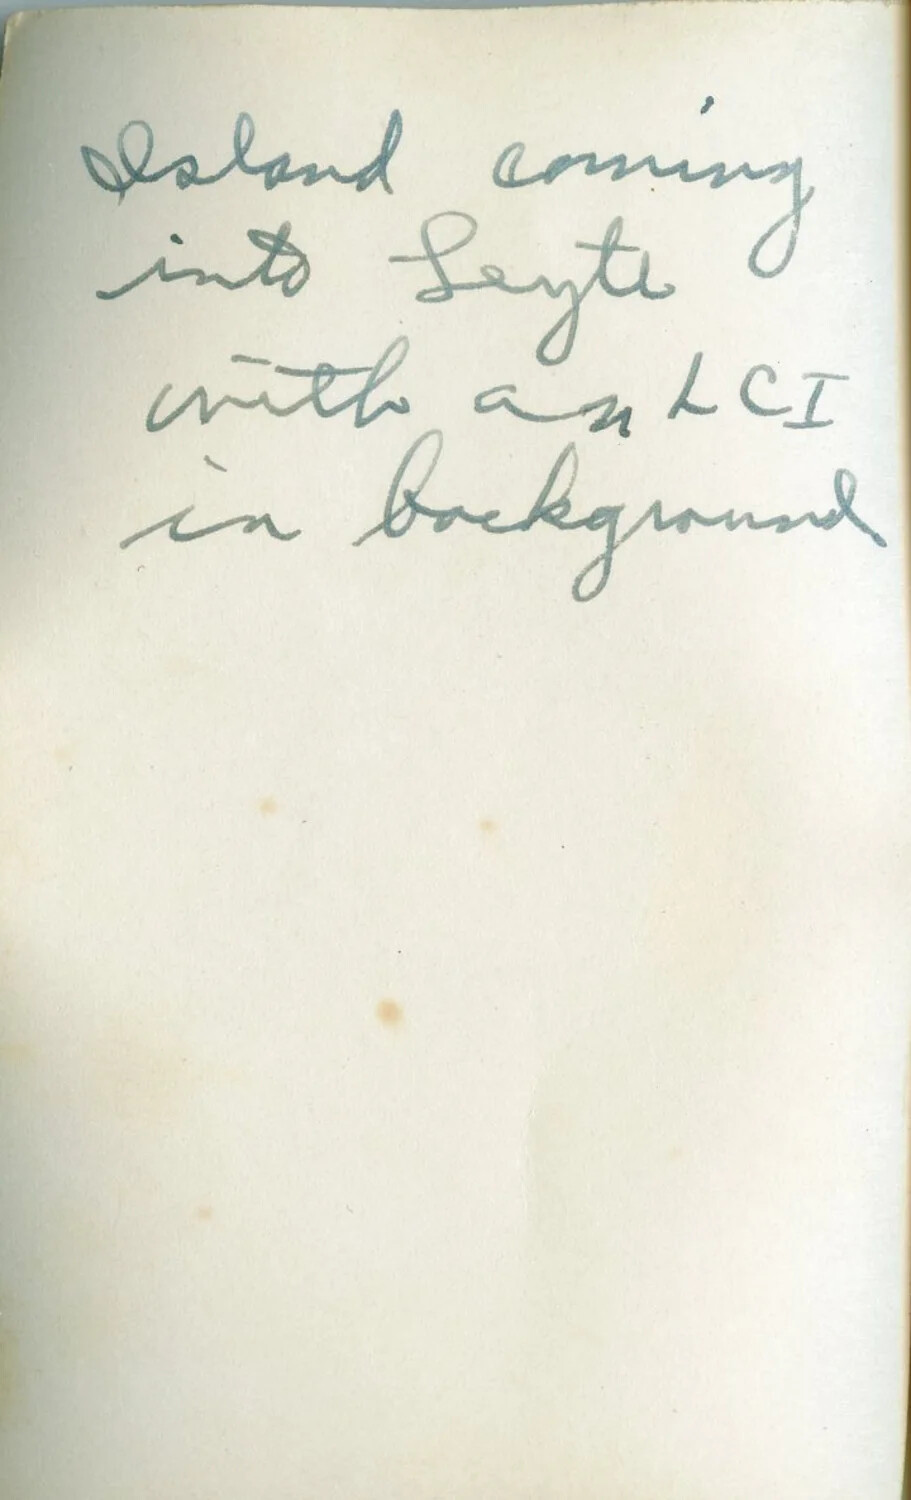 Island coming
into Leyte
with an LCI
in background